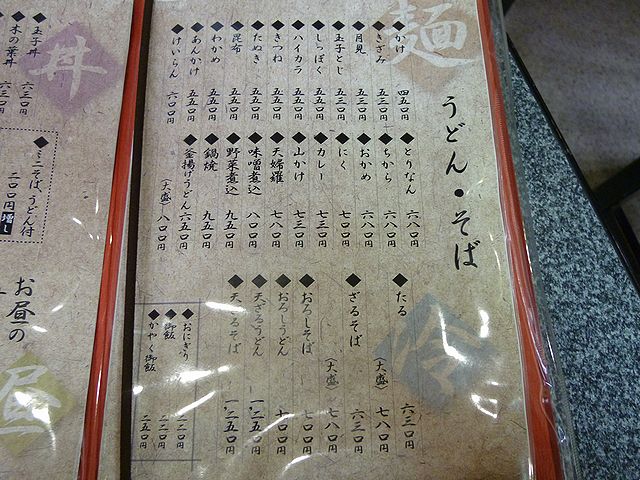 麺
うどん・そば
◆かけ 四五〇円
◆きざみ 五三〇円
◆月見 五三〇円
◆玉子とじ 五三〇円
◆しっぽく 五五〇円
◆ハイカラ 五五〇円
◆きつね 五五〇円
◆たぬき 五五〇円
◆昆布 五五〇円
◆わかめ 五五〇円
◆あんかけ 五五〇円
◆けいらん 六〇〇円
◆とりなん 六八〇円
◆ちから 六八〇円
◆おかめ 六八〇円
◆にく 七〇〇円
◆カレー 七三〇円
◆山かけ 七三〇円
◆天婦羅 七八〇円
◆味噌煮込 八〇〇円
◆野菜煮込 九五〇円
◆鍋焼 九五〇円
◆釜揚げうどん 六五〇円
(大盛) 八〇〇円
冷
◆ざる 六三〇円
(大盛) 七八〇円
◆ざるそば 六三〇円
(大盛) 七八〇円
◆おろしそば 七〇〇円
◆おろしうどん 七〇〇円
◆天ざるうどん 一、二五〇円
◆天ざるそば 一、二五〇円
◆おにぎり 二二〇円
◆御飯 二二〇円
◆かやく御飯 二五〇円
丼
玉子丼 六三〇円
木の葉丼 六三〇円
◆ミニそば、うどん付
二〇〇円増し
お昼の
昼